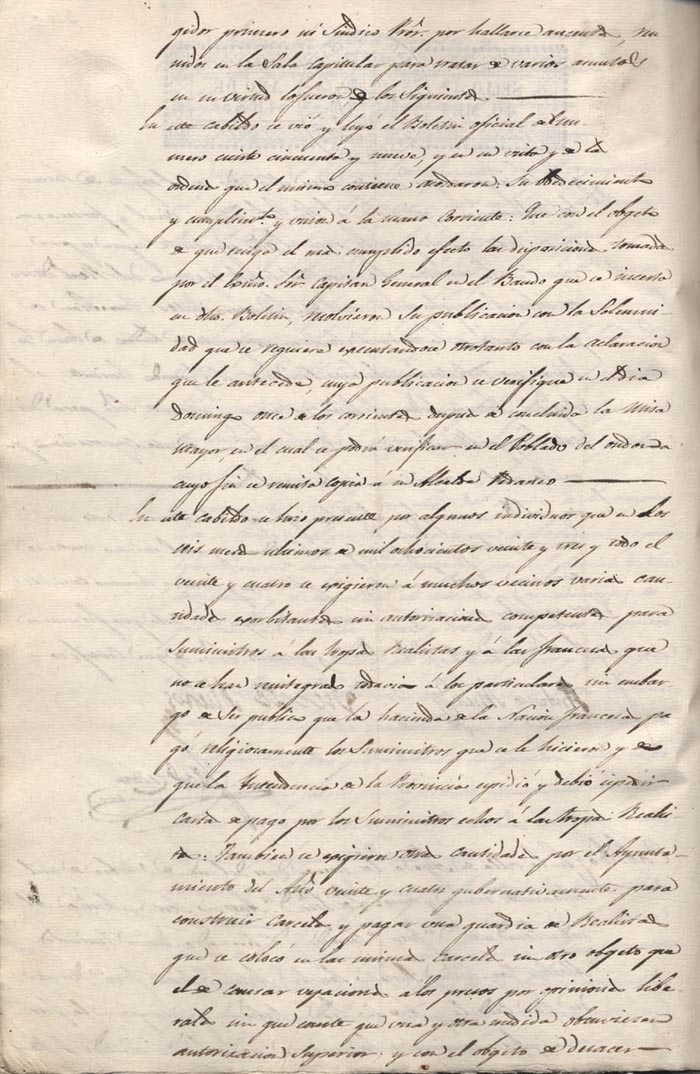 gidor primero ni Síndico Prôr. por hallarse ausente, reu-
nidos en la Sala Capitular para tratar de varios asuntos
en su virtud lo fueron de los Siguientes
En este cabildo se vió y leyó el Boletin oficial del nu-
mero ciento cincuenta y nueve, y en su vista y de la
orden que el mismo contiene acordaron: Su obedecimiento
y cumplimto. y union á la mano Corriente: Que con el objeto
de que surja el mas cumplido efecto las disposiciones tomadas
por el Exmo. Sor. Capitan General en el Bando que se inserta
en dho. Boletin, resolvieron Su publicacion con la Solemni-
dad que se requiere ejecutandose otrotanto con la aclaracion
que le antecede, cuya publicacion se verifique en el dia
Domingo once de los corrientes despues de concluida la Misa
mayor, en el cual se podrá verificar en el Poblado del
cuyo fin se remita copia á su Alcalde Pedaneo
En este cabildo se hizo presente por algunos individuos que en los
seis meses ultimos de mil ochocientos veinte y tres y todo el
veinte y cuatro se exigieron á muchos vecinos varias can-
tidades exorbitantes sin autorizaciones competentes para
Suministros á las tropas Realistas y á las francesas que
no se han reintegrado todavia á los particulares sin embar-
go de Ser publico que la hacienda de la Nacion francesa pa-
gó religiosamente los Suministros que se le hicieron y de
que la Intendencia de la Provincia espidió y debió espedir
carta de pago por los Suministros echos á las tropas Realis-
tas: Tambien se exigieron otras cantidades por el Ayunta-
miento del Año veinte y cuatro gubernativamente para
construir Carceles y pagar una guardia de Realistas
que se colocó en las mismas Carceles sin otro objeto que
el de causar vejaciones á los presos por opiniones libe-
rales sin que conste que una y otra medida obtuvieran
autorizacion Superior: y con el objeto de deshacer